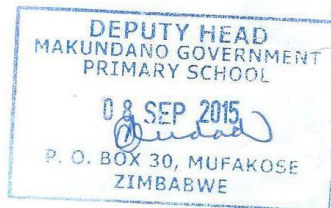 DEPUTY HEAD
MAKUNDANO GOVERNMENT
PRIMARY SCHOOL
08 SEP 2015
P. O. BOX 30, MUFAKOSE
ZIMBABWE